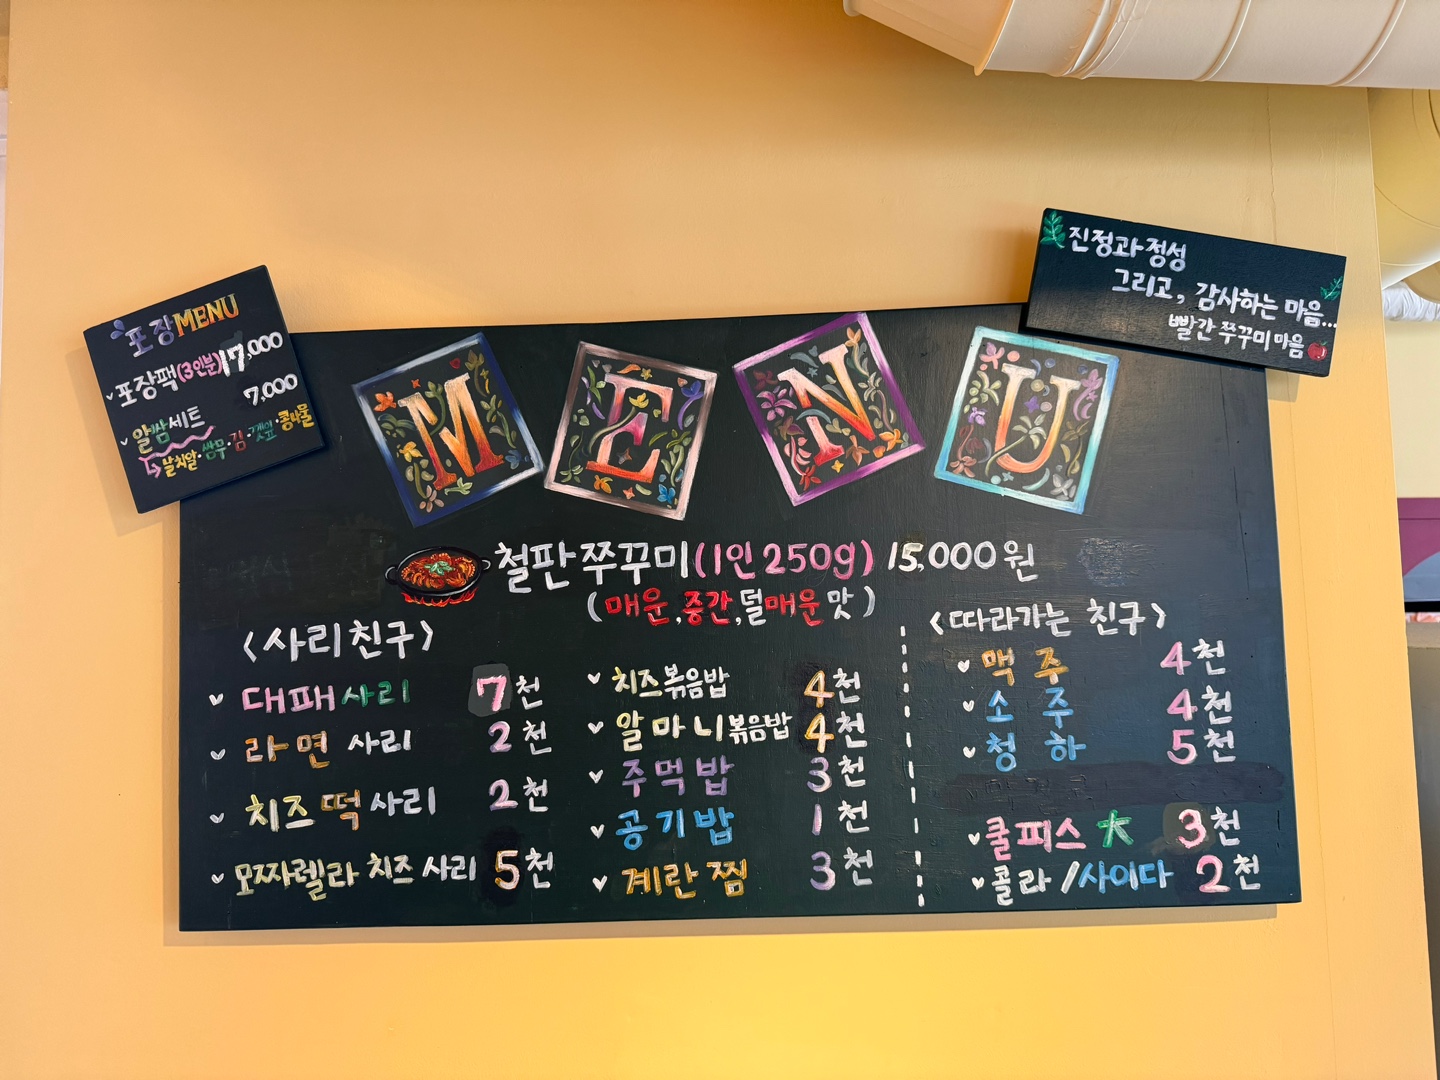 포장MENU
포장팩(3인분)17,000
7,000
알쌈세트
날치알·쌈무·김·깻잎·콩나물
진정과 정성
그리고, 감사하는 마음...
빨간 쭈꾸미 마음
MENU
철판쭈꾸미(1인 250g) 15,000원
(매운,중간,덜매운맛)
<사리친구>
대패사리 7천
라면 사리 2천
치즈떡사리 2천
모짜렐라 치즈사리 5천
치즈볶음밥 4천
알마니볶음밥 4천
주먹밥 3천
공기밥 1천
계란찜 3천
<따라가는 친구>
맥주 4천
소주 4천
청하 5천
쿨피스 大 3천
콜라/사이다 2천